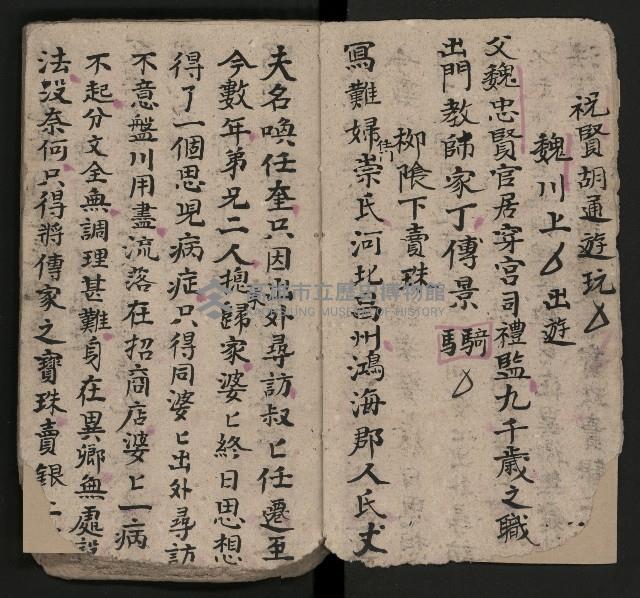 祝賢胡通遊玩
魏川上 出遊
父魏忠賢官居穿宮司禮監九千歲之職
出門教師家丁傳景騎
柳陰下賣珠
寫難婦任門崇氏河北昌州鴻海郡人氏丈
夫名喚任奎只因出外尋訪叔〻任遷至
今數年弟兄二人摠歸家婆〻終日思想
得了一個思兒病症只得同婆〻出外尋訪
不意盤川用盡流落在招商店婆〻一病
不起分文全無調理甚難身在異鄉無處設
法沒奈何只得將傳家之寶珠賣銀
高雄市立歷史博物館
KAOHSIUNG MUSEUM OF HISTORY